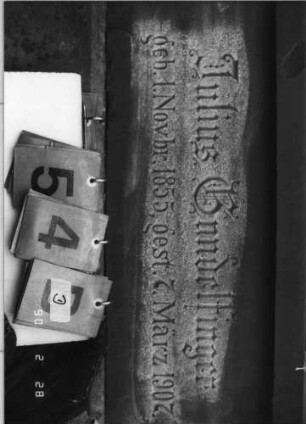 Julius Gundelfinger
geb. 1. Novbr. 1855, gest. 7. März 1907
5
4
D
3
90 2 28